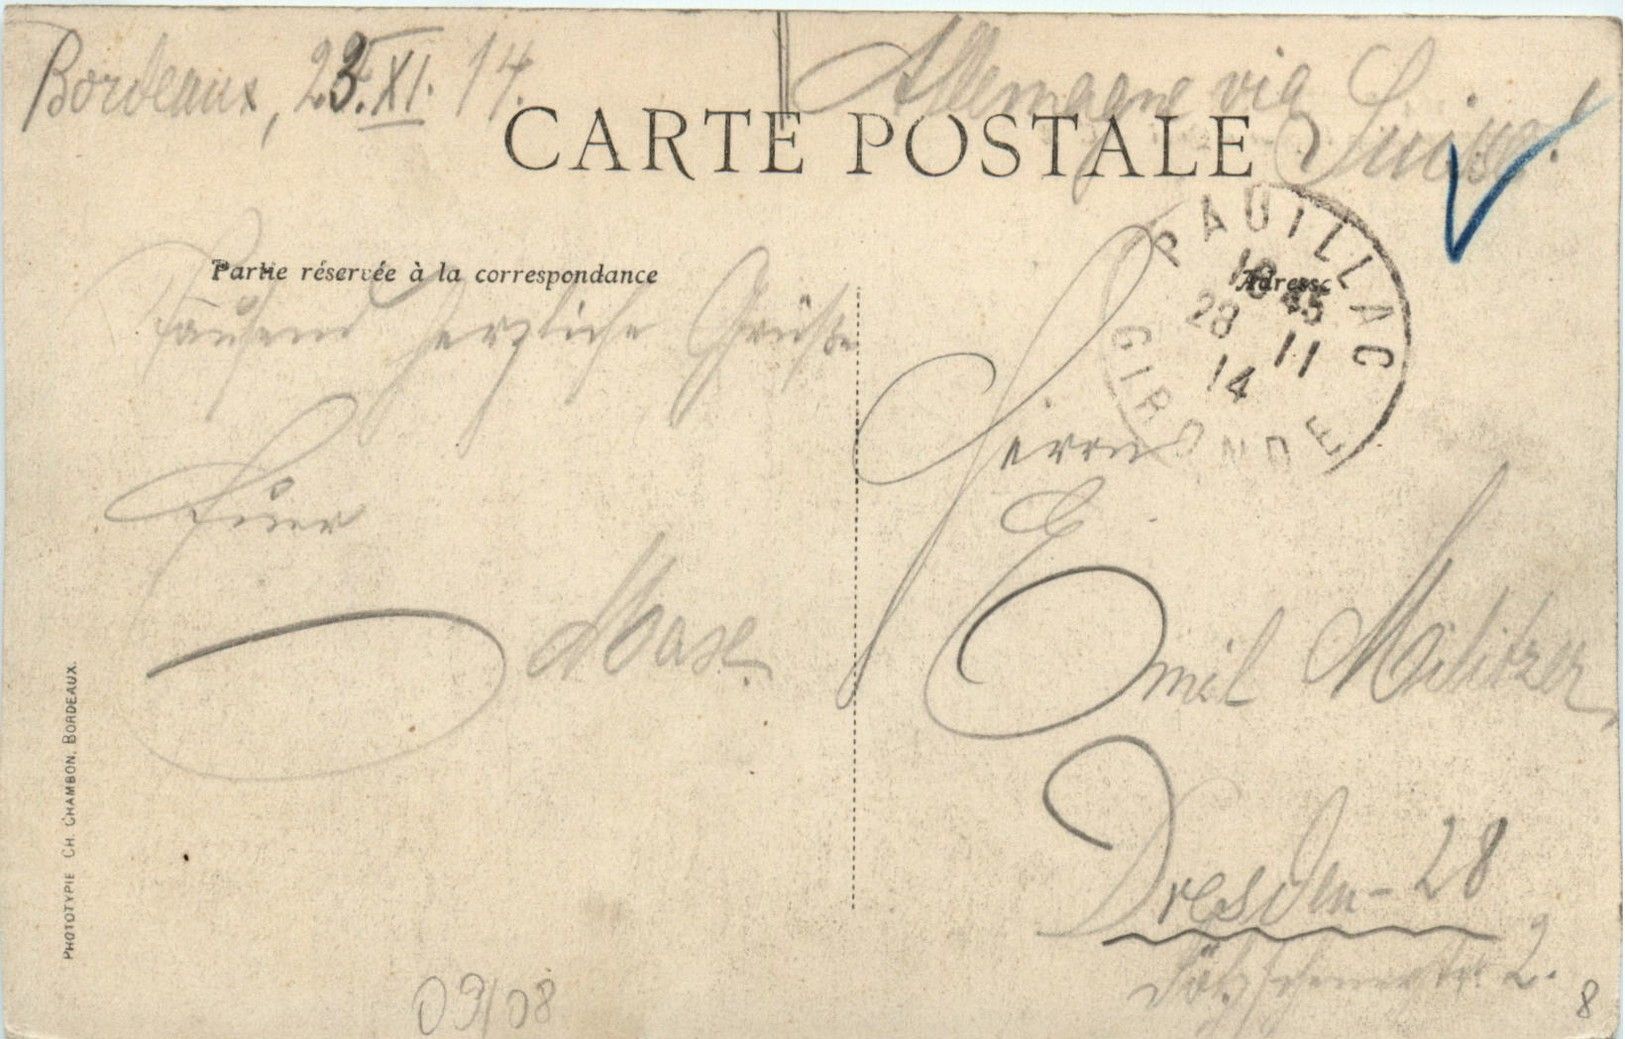 Bordeaux, 23. XI. 14.
Allemagne via
Suisse!
CARTE POSTALE
Partie réservée à la correspondance
Adresse
PAUILLAC
18 45
28 11
14
GIRONDE
Tausend herzliche Grüße
Euer
Herrn
E
Emil Militzer
Dresden - 28
2.
PHOTOTYPIE CH. CHAMBON, BORDEAUX.
09/08
8